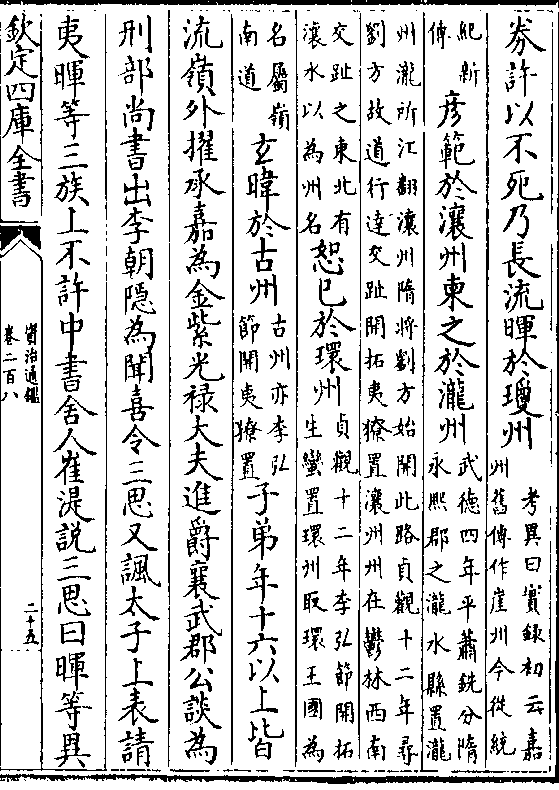 券許以不死乃長流暉於瓊州考異曰實録初云嘉州舊傳作崖州今從統
紀新傳彦範於瀼州柬之於瀧州武德四年平蕭銑分隋永熙郡之瀧水縣置瀧
州瀧所江翻瀼州隋將劉方始開此路貞觀十二年尋劉方故道行達交趾開拓夷獠置瀼州州在鬱林西南
交趾之東北有瀼水以為州名恕已於環州貞觀十二年李弘節開拓生蠻置環州取環王國為
名屬嶺南道玄暐於古州古州亦李弘節開夷獠置子弟年十六以上皆
流嶺外擢承嘉為金紫光禄大夫進爵襄武郡公談為
刑部尚書出李朝隱為聞喜令三思又諷太子上表請
夷暉等三族上不許中書舍人崔湜説三思曰暉等異
欽定四庫全書
資治通鑑
卷二百八
二十五